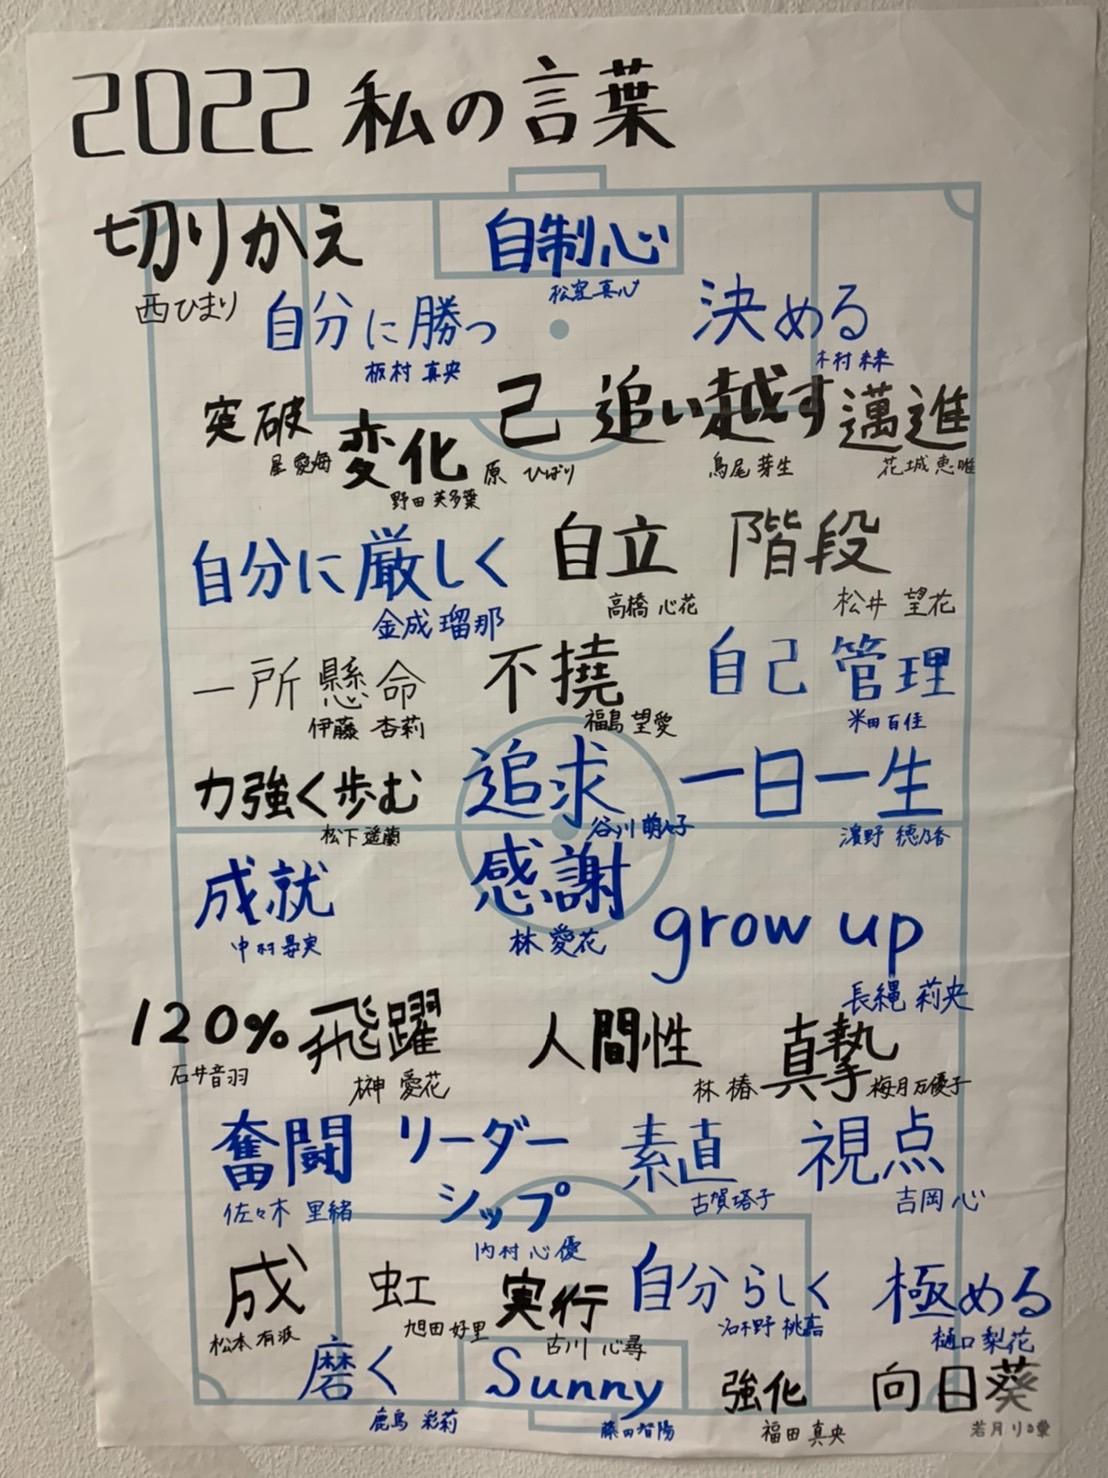 2022 私の言葉
切りかえ
西ひまり
自制心
松窪真心
自分に勝つ
板村 真央
決める
木村 未来
突破
星 愛海
変化
野田 芙多葉
己
原 ひばり
追い越す
鳥尾 芽生
邁進
花城 恵唯
自分に厳しく
金成 瑠那
自立
高橋 心花
階段
松井 望花
一所懸命
伊藤 杏莉
不撓
福島 望愛
自己管理
米田 百佳
力強く歩む
松下 遥蘭
追求
谷川 萌々子
一日一生
濵野 穂乃香
成就
中村
感謝
林 愛花
grow up
長縄 莉央
120%
石井音羽
飛躍
榊 愛花
人間性
林 椿
真摯
梅月万優子
奮闘
佐々木 里緒
リーダー
シップ
内村 心優
素直
古賀塔子
視点
吉岡 心
成
松本 有波
虹
旭田 好里
実行
古川 心尋
自分らしく
桃嘉
極める
樋口 梨花
磨く
鹿島 彩莉
Sunny
藤田智陽
強化
福田 真央
向日葵
若月